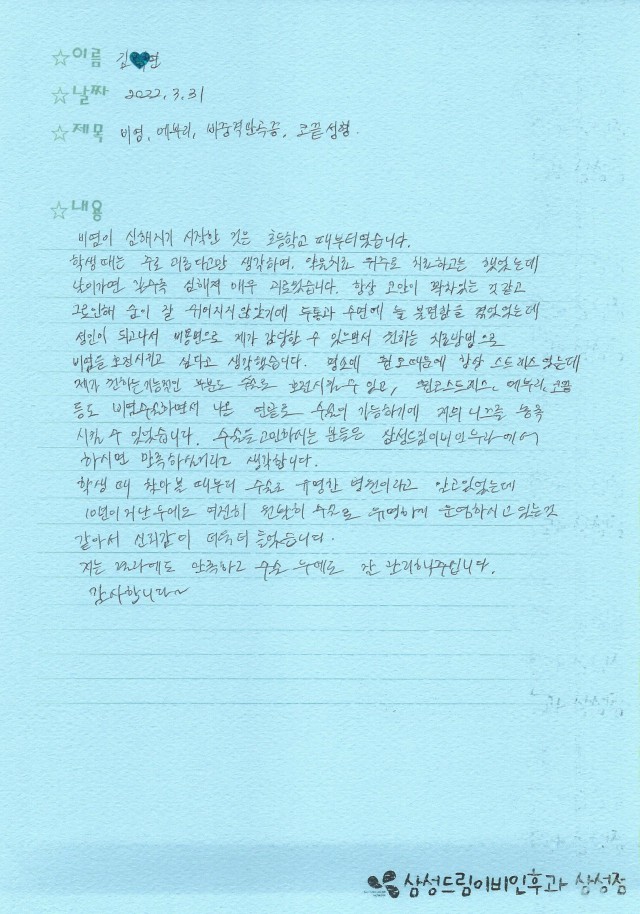 ☆이름 김♥연
☆날짜 2022. 3. 31
☆제목 비염, 매부리, 비중격만곡증, 코끝성형.
☆내용
비염이 심해지기 시작한 것은 초등학교 때부터였습니다.
학생때는 주로 괴롭다고만 생각하며, 약물치료 위주로 치료하고는 했었는데
날이가면 갈수록 심해져 매우 괴로웠습니다. 항상 코안이 꽉차있는 것 같고
그로인해 숨이 잘 쉬어지지 않았기에 두통과 수면에 늘 불편함을 겪었었는데
성인이 되고나서 비용면으로 제가 감당할 수 있으면서 원하는 치료방법으로
비염을 호전시키고 싶다고 생각했습니다. 평소에 휜코때문에 항상 스트레스였는데
제가 원하는 기능적인 부분도 수술로 호전시킬수 있고, 휜코스트레스, 매부리, 코끝
등도 비염수술하면서 나온 연골로 수술이 가능하기에 저의 니즈를 충족
시킬 수 있었습니다. 수술을 고민하시는 분들은 삼성드림이비인후과에서
하시면 만족하실거라고 생각합니다.
학생 때 찾아볼 때부터 수술로 유명한 병원이라고 알고있었는데
10년이 지난 후에도 여전히 꾸준히 수술로 유명하게 운영하시고 있는것
같아서 신뢰감이 더욱 더 들었습니다.
저는 결과에도 만족하고 수술 후에도 잘 관리해주십니다.
감사합니다~
삼성드림이비인후과 삼성점